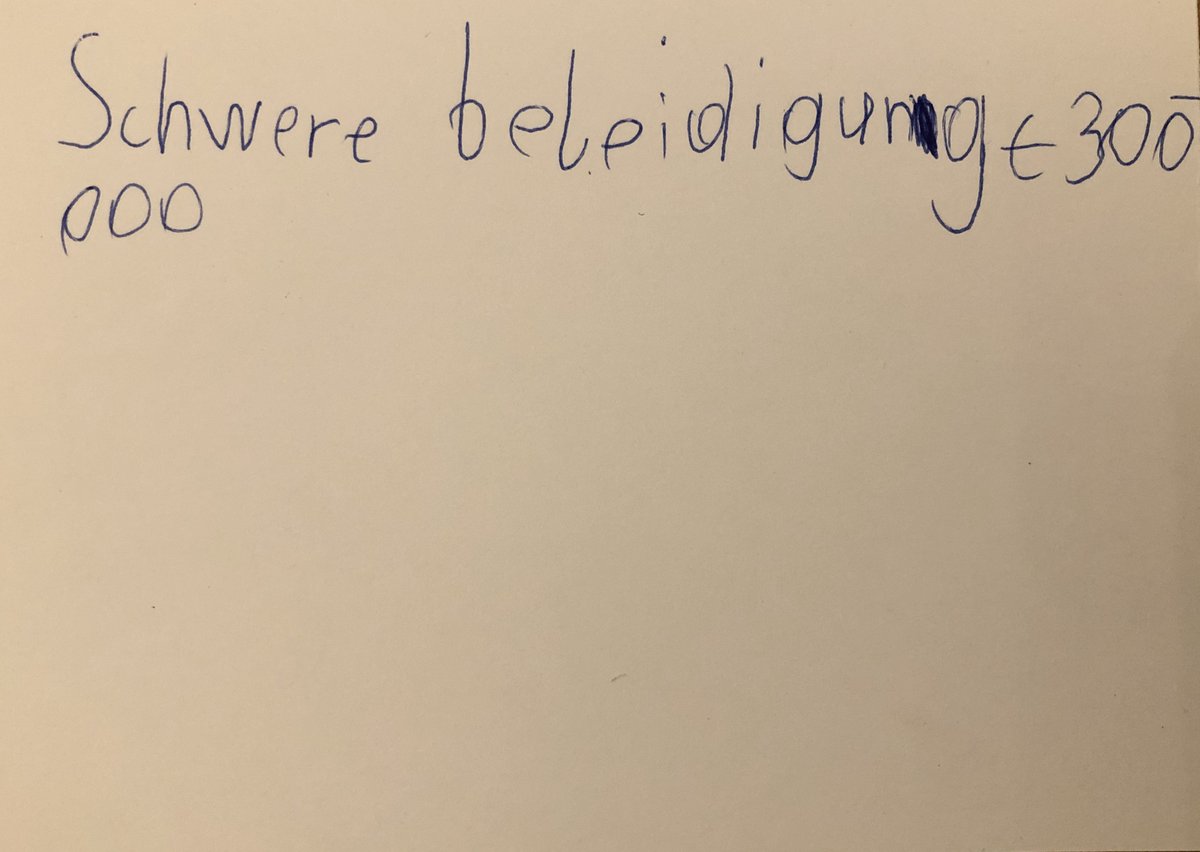 Schwere beleidigung € 300
000